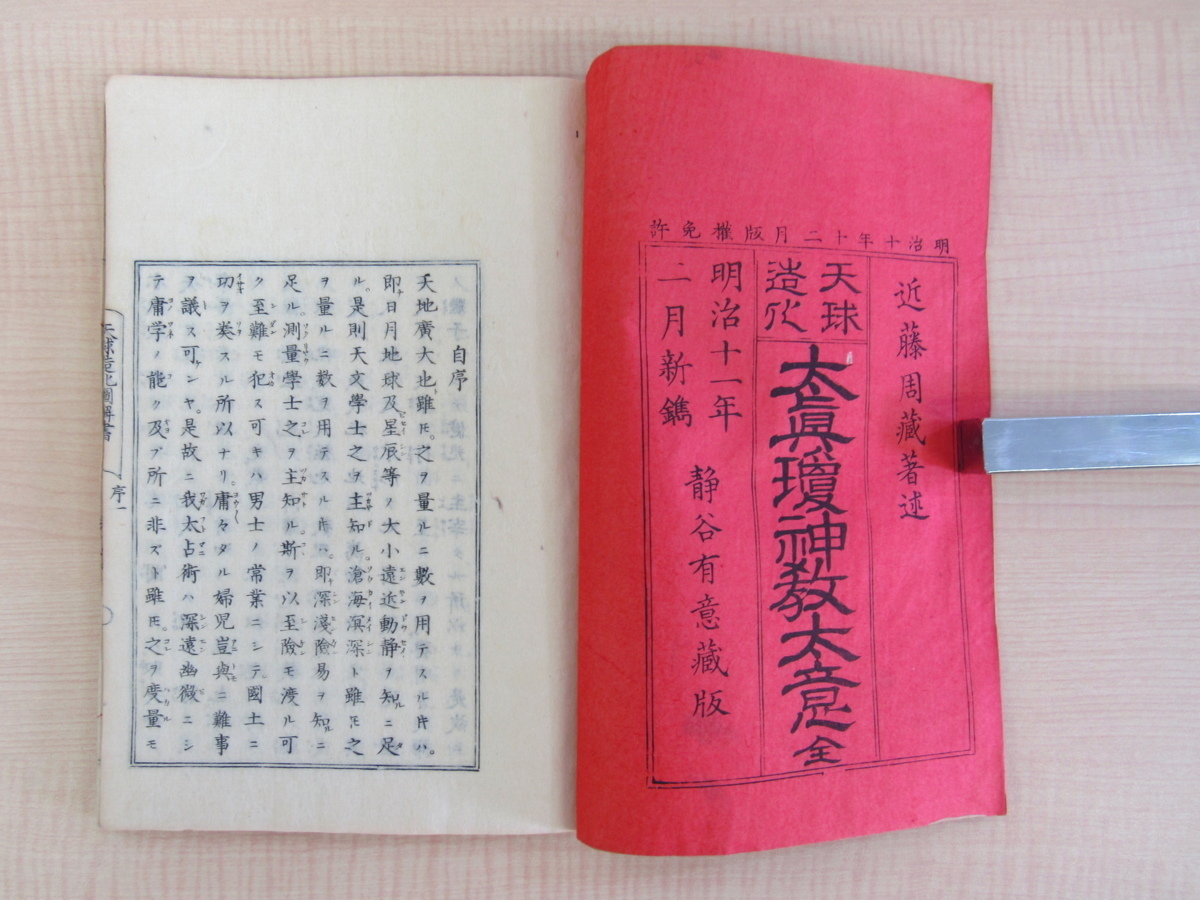 明治十年十二月版権免許
近藤周藏著述
天球
造化
太眞瓊神教太意全
明治十一年
二月新鐫
静谷有意藏版
自序
天地廣大也ト雖𪜈之ヲ量ルニ數ヲ用テスル𪜈ハ
即日月地球及星辰等ノ大小遠近動静ヲ知ニ足
ル是則天文學士之ヲ主知ル滄海溟深ト雖𪜈之
ヲ量ルニ數ヲ用テスル𪜈ハ即深淺險易ヲ知ルニ
足ル測量學士之ヲ主知ル斯ヲ以至險モ渡ル可
ク至難モ犯ス可キハ男士ノ常業ニシテ國土ニ
功ヲ奏スル所以ナリ庸々タル婦児豈與ニ難事
ヲ議ス可ンヤ是故ニ我太占術ハ深遠幽微ニシ
テ庸学ノ能ク及ブ所ニ非ズト雖𪜈之ヲ度量モ
天球造化圖解書
序一